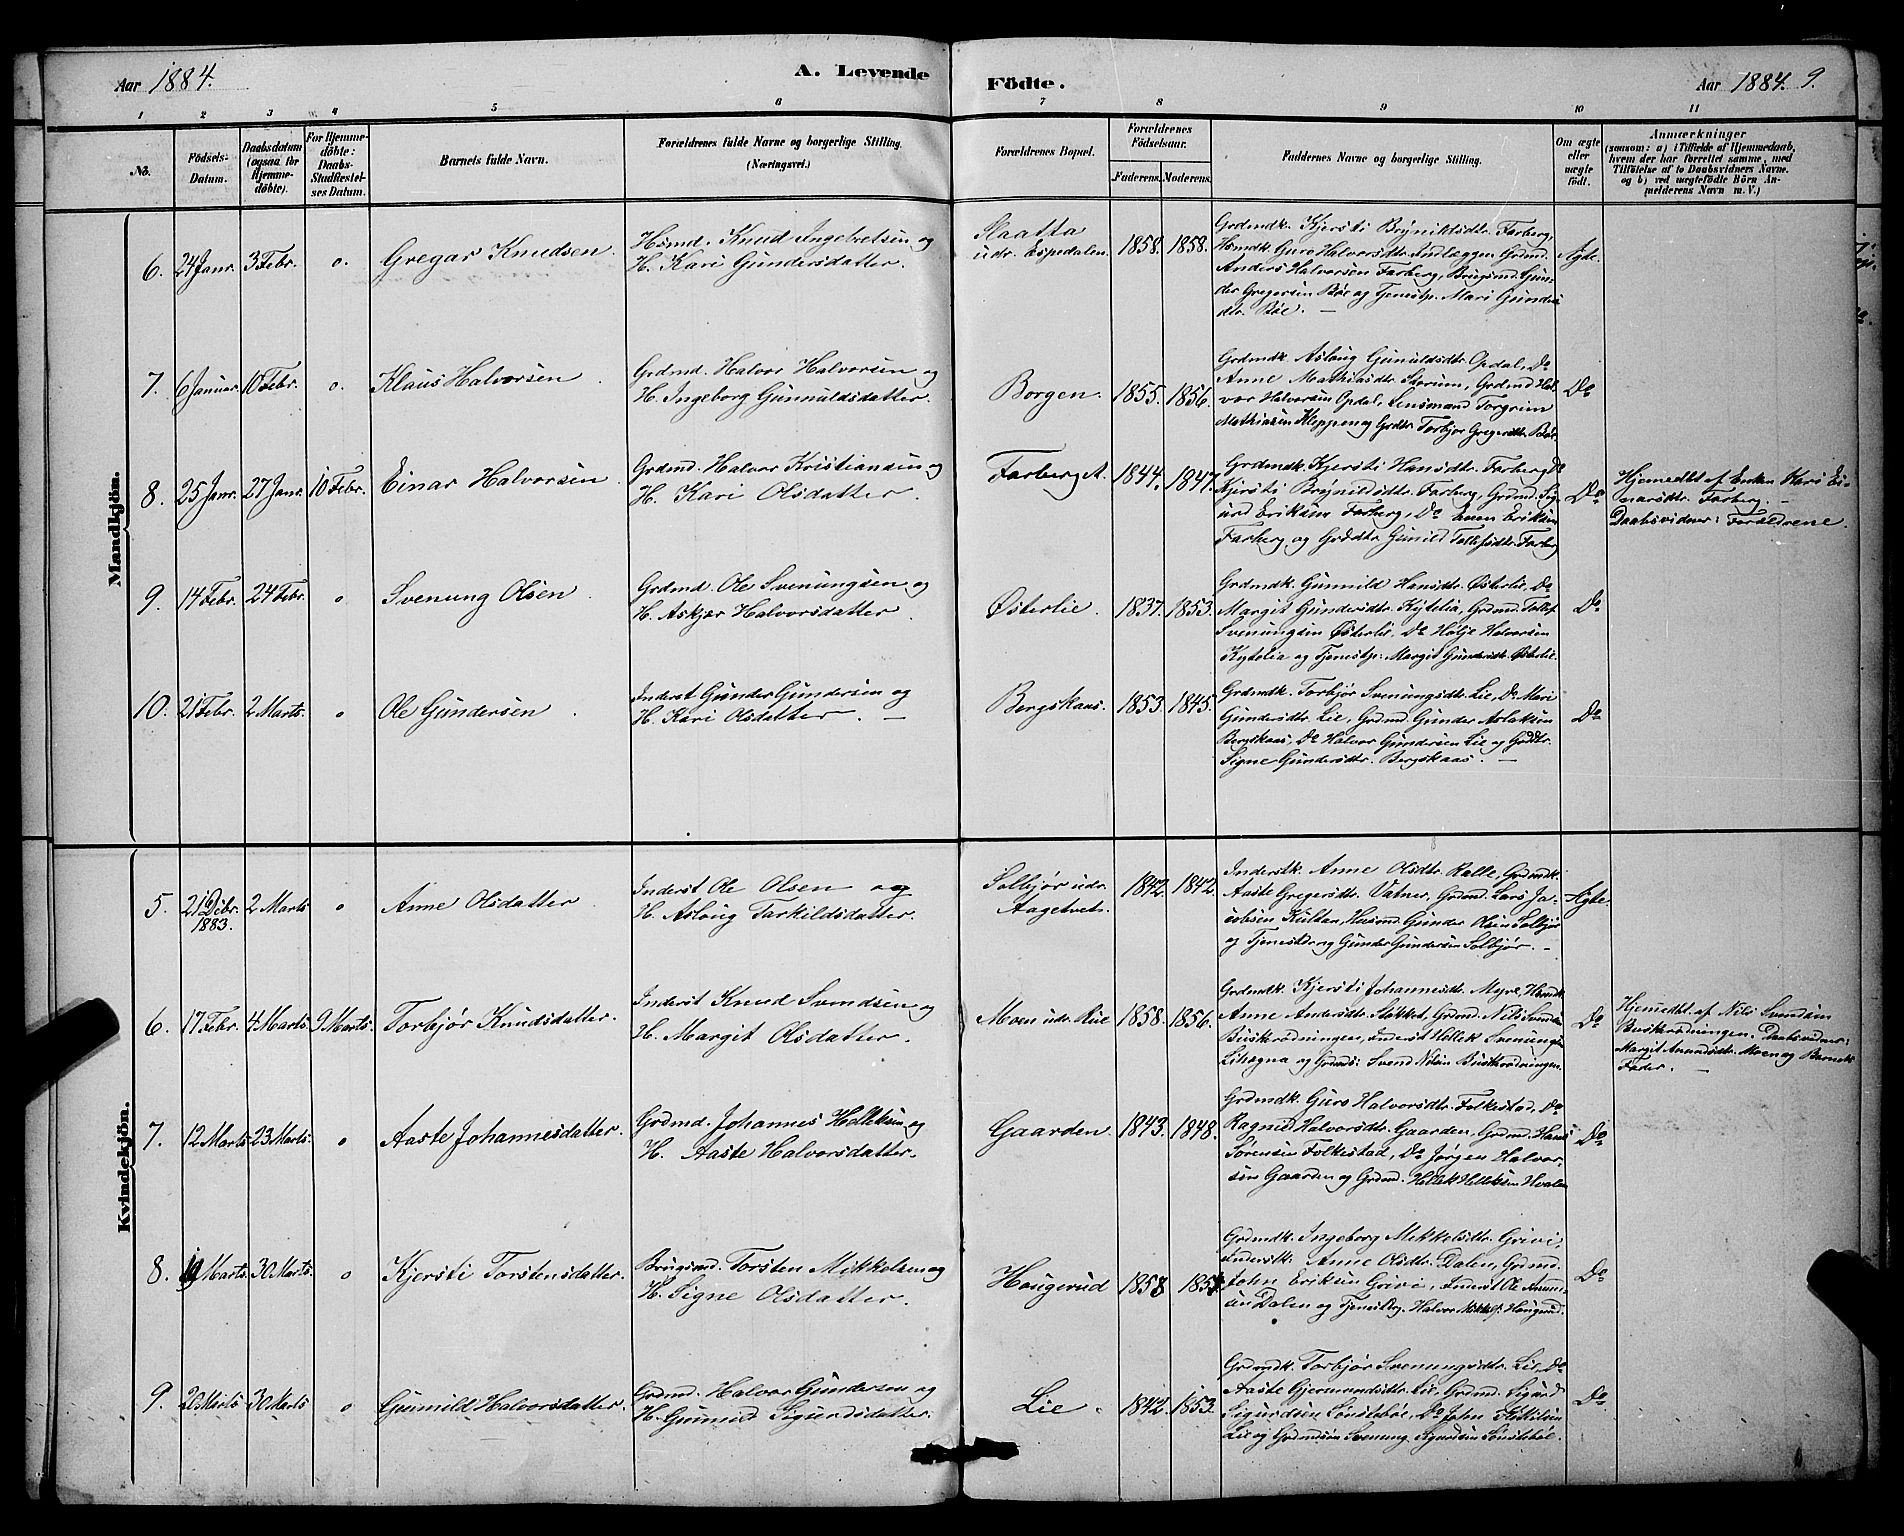 Aar 1884.
A. Levende
Födte.
Aar 1884. 9.
1 2 3 4 5 6 7 8 9 10 11
No.
Födsels-
Datum.
Daabsdatum
(ogsaa for
Hjemme-
döbte).
For Hjemme-
döbte:
Daabs-
Stadfæstel-
ses Datum.
Barnets fulde Navn.
Forældrenes fulde Navne og borgerlige Stilling.
(Næringsvei.)
Forældrenes Bopæl.
Forældrenes
Födselsaar.
Faderens. Moderens.
Faddernes Navne og borgerlige Stilling.
Om ægte
eller
uægte
født.
Anmærkninger
(saasom: a) i Tilfælde af Hjemmedaab,
hvem der har forrettet samme, med
Tilföielse af to Daabsvidners Navne.
og b) ved uægtefödte Börn An-
melderens Navn m. V.)
Mandkjön.
6. 24 Janr. 3 Febr. o. Gregar Knudsen.
Hsmd. Knud Ingebretsen og
H. Kari Gundersdatter.
Slaatta
udr. Espedalen.
1858. 1858.
Grdmdk. Kjersti Brynildsdtr. Farberg,
Hsmdk. Guro Halvorsdtr. Indlæggen Grdmd.
Anders Halvorsen Farberg, Brugsmd. Gun-
der Gregersen Böe og Tjenestp. Mari Gunders
dtr. Böe. —
Ægte.
7. 6 Januar. 10 Febr. o. Klaus Halvorsen
Grdmd. Halvor Halvorsen og
H. Ingeborg Gunnuldsdatter.
Borgen. 1855. 1856.
Grdmdk. Aslaug Gunuldsdtr. Opdal, Do
Anne Mathiasdtr. Storum, Grdmd Hal-
vor Halvorsen Opdal, Lensmand Torgrim
Mathiasen Kleppen og Grdtr. Torbjør Gregersdtr. Böe.
Do
8. 25 Janr. 27 Janr. 10 Febr. Einar Halvorsen
Grdmd. Halvor Kristiansen og
H. Kari Olsdatter.
Farberg A. 1844. 1847.
Grdmdk. Kjersti Hansdtr. Farberg Do
Kjersti Brynildsdtr. Farberg, Grdmd. Sig-
urd Eriksen Farberg, Do Even Eriksen
Farberg og Grddtr. Gunild Tollefsdtr. Farberg
Do
Hjemedbt af Enken Kari Ei-
narsdtr. Farberg. —
Daabsvidner: Forældrene.
9. 14 Febr. 24 Febr. o Svenung Olsen
Grdmd. Ole Svenungsen og
H. Askjær Halvorsdatter
Østerlie. 1837. 1853.
Grdmdk. Gunnild Hansdtr. Østerlie, Do
Margit Gundersdtr. Kytelia, Grdmd. Tollef
Svenungsen Østerlie, Do Hølje Halvorsen
Kytelia og Tjenestp: Margit Gundersdtr. Østerlie.
Do
10. 21 Febr. 2 Marts. o Ole Gundersen
Inderst Gunder Gundersen og
H. Kari Olsdatter. —
Bergskaas. 1853. 1845.
Grdmdk. Torbjør Svenungsdtr. Lie, Do Mari
Gundersdtr. Lie, Grdmd. Gunder Aslaksen
Bergskaas, Do Halvor Gundersen Lie og Grddtr.
Signe Gundersdtr. Bergskaas. —
Do
Kvindekjön.
5. 21 Debr.
1883.
2 Marts o Anne Olsdatter.
Inderst Ole Olsen og
H. Aslaug Tarkildsdatter.
Solbjør udr.
Aagetveit.
1842. 1842.
Inderstk. Anne Olsdtr. Kalle, Grdmdk.
Aaste Gregersdtr. Vatner, Grdmd. Lars Ja-
cobsen Kultan, Husmd. Gunder Olsen Solbjør
og Gunder Gundersen Solbjør. —
Ægte.
6. 17 Febr. 4 Marts. 9 Marts. Torbjør Knudsdatter.
Inderst Knud Svendsen og
H. Margit Olsdatter.
Moen udr. Riie 1858. 1856.
Grdmdk. Kjersti Johannesdtr. Myre, Hsmdk.
Anne Andersdtr. Slókket, Grdmd. Nils Svendsen
Buskrødningen, Inderst Hellek Svenungsen
Lihagna og Grdmds: Svend Nilsen Buskrødningen.
Do
Hjemedbt. af Nils Svendsen
Buskrødningen. Daabsvidner:
Margit Amundsdtr. Moen og Barnets
Fader. —
7. 12 Marts 23 Marts. o Aaste Johannesdatter.
Grdmd. Johannes Helleksen og
H. Aaste Halvorsdatter.
Gaarden. 1843. 1848.
Grdmdk. Guro Halvorsdtr. Folkestad, Do
Ragnild Halvorsdtr. Gaarden, Grdmd. Hans
Sørensen Folkestad, Do Jørgen Halvor-
sen Gaarden og Grdmd. Hellek Helleksen Hvalen
Do
8. Marts. 30 Marts. o Kjersti Torstensdatter.
Brugsmd. Torsten Mikkelsen og
H. Signe Olsdatter.
Haugerud 1858
Grdmdk. Ingeborg Mekkelsdtr. Grivi,
Inderstk. Anne Olsdtr. Dalen, Grdmd.
John Eriksen Grivi, Inderst Ole Amund-
sen Dalen og Halvor Mikkelsen Haugerud.
Do
9. 20 Marts 30 Marts o Gunnild Halvorsdatter.
Grdmd. Halvor Gundersen og
H. Gunnild Sigurdsdatter.
Lie. 1842. 1853.
Grdmdk. Torbjør Svenungsdtr. Lie, Do
Aaste Gjermundsdtr. Lie, Grdmd. Sigurd
Sigurdsen Sønstebøe, Do John
Lie og Grdmdsøn Svenung Sigurdsen Sønstebøe.
Do